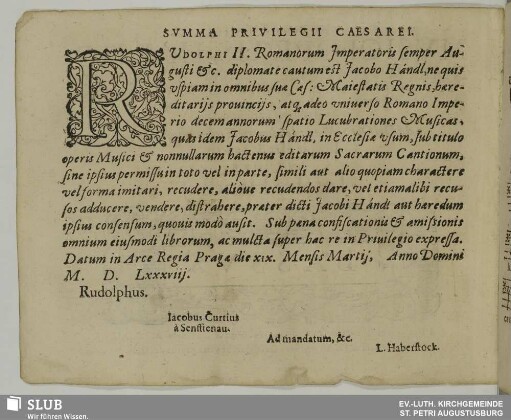 SVMMA PRIVILEGII CAESAREI.
RVDOLPHI II. Romanorum Imperatoris semper Au-
gusti &c. diplomate cautum est Jacobo Händl, ne quis
vspiam in omnibus suæ Cæs: Maiestatis Regnis, hære-
ditarijs prouincijs, atq; adeo vniuerso Romano Impe-
rio decem annorum spatio Lucubrationes Musicas,
quas idem Jacobus Händl, in Ecclesiæ vsum, sub titulo
operis Musici & nonnullarum hactenus editarum Sacrarum Cantionum,
sine ipsius permissu in toto vel in parte, simili aut alio quopiam charactere
vel forma imitari, recudere, aliove recudendos dare, vel etiam alibi recu-
sos adducere, vendere, distrahere, præter dicti Jacobi Händl aut hæredum
ipsius consensum, quouis modo ausit. Sub pœna confiscationis & amissionis
omnium eiusmodi librorum, ac mulcta super hac re in Priuilegio expressa.
Datum in Arce Regia Pragæ die xix. Mensis Martij, Anno Domini
M. D. Lxxxviij.
Rudolphus.
Iacobus Curtius
à Senftenau.
Ad mandatum, &c.
I. Haberstock.
SLUB
Wir führen Wissen.
EV.-LUTH. KIRCHGEMEINDE
ST. PETRI AUGUSTUSBURG